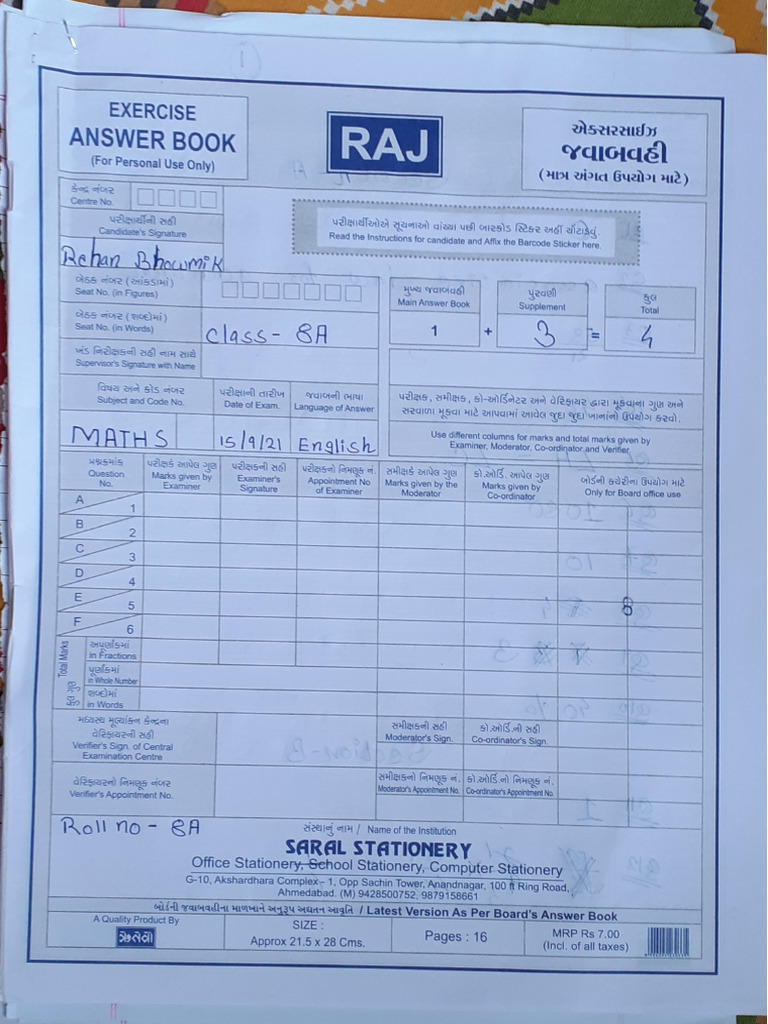 1
EXERCISE
ANSWER BOOK
(For Personal Use Only)
RAJ
એક્સરસાઈઝ
જવાબવહી
(માત્ર અંગત ઉપયોગ માટે)
કેન્દ્ર નંબર
Centre No.
પરીક્ષાર્થીની સહી
Candidate's Signature
Rehan Bhowmik
પરીક્ષાર્થીઓએ સૂચનાઓ વાંચ્યા પછી બારકોડ સ્ટિકર અહીં ચોંટાડેવું.
Read the Instructions for candidate and Affix the Barcode Sticker here.
બેઠક નંબર (આંકડામાં)
Seat No. (in Figures)
બેઠક નંબર (શબ્દોમાં)
Seat No. (in Words)
Class - 8A
ખંડ નિરીક્ષકની સહી નામ સાથે
Supervisor's Signature with Name
મુખ્ય જવાબવહી
Main Answer Book
1
+
પુરવણી
Supplement
3
=
કુલ
Total
4
વિષય અને કોડ નંબર
Subject and Code No.
પરીક્ષાની તારીખ
Date of Exam.
જવાબની ભાષા
Language of Answer
MATHS
15/9/21
English
પરીક્ષક, સમીક્ષક, કો-ઓર્ડિનેટર અને વેરિફાયર દ્વારા મૂકવાના ગુણ અને
સરવાળા મૂકવા માટે આપવામાં આવેલ જુદા જુદા ખાનાંનો ઉપયોગ કરવો.
Use different columns for marks and total marks given by
Examiner, Moderator, Co-ordinator and Verifier
પ્રશ્નક્રમાંક
Question
No.
પરીક્ષકે આપેલ ગુણ
Marks given by
Examiner
પરીક્ષકની સહી
Examiner's
Signature
પરીક્ષકનો નિમણૂક નં.
Appointment No
of Examiner
સમીક્ષકે આપેલ ગુણ
Marks given by the
Moderator
કો.ઓર્ડિ. આપેલ ગુણ
Marks given by
Co-ordinator
બોર્ડની કચેરીના ઉપયોગ માટે
Only for Board office use
A 1
B 2
C 3
D 4
E 5
8
F 6
Total Marks
અપૂર્ણાંકમાં
in Fractions
પૂર્ણાંકમાં
in Whole Number
શબ્દોમાં
in Words
મધ્યસ્થ મૂલ્યાંકન કેન્દ્રના
વેરિફાયરની સહી
Verifier's Sign. of Central
Examination Centre
સમીક્ષકની સહી
Moderator's Sign.
કો.ઓર્ડિ.ની સહી
Co-ordinator's Sign.
વેરિફાયરનો નિમણૂક નંબર
Verifier's Appointment No.
સમીક્ષકનો નિમણૂક નં.
Moderator's Appointment No.
કો.ઓર્ડિ.નો નિમણૂક નં.
Co-ordinator's Appointment No.
Roll no - 8A
સંસ્થાનું નામ / Name of the Institution
SARAL STATIONERY
Office Stationery, School Stationery, Computer Stationery
G-10, Akshardhara Complex - 1, Opp Sachin Tower, Anandnagar, 100 ft Ring Road,
Ahmedabad. (M) 9428500752, 9879158661
બોર્ડની જવાબવહીના માળખાને અનુરૂપ અદ્યતન આવૃત્તિ / Latest Version As Per Board's Answer Book
A Quality Product By
SIZE :
Approx 21.5 x 28 Cms.
Pages : 16
MRP Rs 7.00
(Incl. of all taxes)